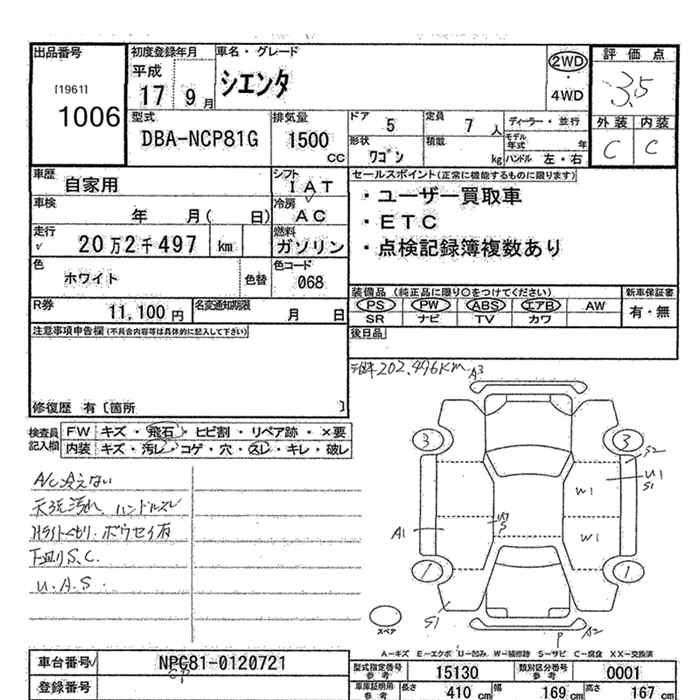 出品番号
[1961]
1006
初度登録年月
平成
17 9 月
車名・グレード
シエンタ
2WD
・
4WD
評価点
3.5
外装 内装
C C
型式
DBA-NCP81G
排気量
1500
CC
ドア 5
定員 7 人
ディーラー・並行
形状 ワゴン
積載 kg
モデル年式 年
ハンドル 左・右
車歴
自家用
シフト
IAT
車検 年 月( 日)
冷房
AC
走行
20万2千497 km
燃料
ガソリン
色
ホワイト
色替
色コード
068
R券
11,100 円
名変通知期限
月 日
セールスポイント(正常に機能するものに限ります)
・ユーザー買取車
・ETC
・点検記録簿複数あり
装備品(純正品に限り○をつけてください)
新車保証書
PS PW ABS エアB AW
SR ナビ TV カワ
有・無
後日品
注意事項申告欄(不具合内容等は具体的に記入して下さい)
修復歴 有〔箇所 〕
検査員
記入欄
FW キズ・飛石・ヒビ割・リペア跡・×要
内装 キズ・汚レ・コゲ・穴・スレ・キレ・破レ
202,496KM
A3
3
3
S2
U1
S1
W1
W1
A1
W
P
1
1
S1
P
A2
スペア
A/C冷えない
天張汚れ ハンドルスレ
Hライトくもり・ボウセイ有
下廻りS.C.
U.A.S.
A-キズ E-エクボ U-凹み W-補修跡 S-サビ C-腐食 XX-交換済
車台番号
NPC81-0120721
CP
登録番号
型式指定番号
参考
15130
類別区分番号
参考
0001
車庫証明用
参考
長さ 410 cm
幅 169 cm
高さ 167 cm